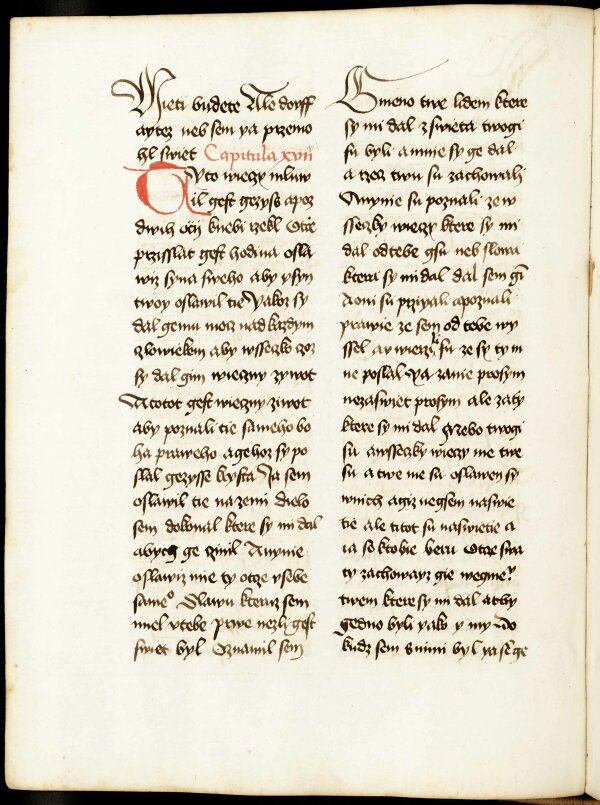 Mieti budete Ale dorff
aytez neb sem ya przemo
hl swiet Capitula xvii
Tyto wieczy mluw
il gest gezyss apoz
dwih oczij knebi rzekl Otcze
przisslat gest hodina osla
wiz syna sweho aby ysyn
twoy oslawil tie Yakoz sy
dal gemu mocz nad kazdym
czlowiekem aby wssecko czoz
sy dal gim wieczny zywot
A totot gest wieczny ziwot
aby poznali tie sameho bo
ha praweho agehoz sy po
slal gezysse krysta Ja sem
oslawil tie na zemi dielo
sem dokonal ktere sy mi dal
abych ge czinil A nynie
oslawiz mie ty otcze v sebe
same° Slawu kteruz sem
miel v tebe prwe nezli gest
swiet byl Oznamil sem
Gmeno twe lidem ktere
sy mi dal z swieta twogi
su byli a mnie sy ge dal
a rzecz twu su zachowali
A nynie su poznali ze w
ssecky wieczy ktere sy mi
dal od tebe gsu neb slowa
ktera sy mi dal dal sem gi
A oni su przigali a poznali
prawie ze sem od tebe wy
ssel a wierzili su ze sy ty m
ne poslal Ya zanie prosym
ne za swiet prosym ale za ty
ktere sy mi dal Nebo twogi
su a wssecky wieczy me twe
su a twe me su a oslawen sy
w nich a giz negsem na swie
tie ale tito su na swietie a
ia se k tobie beru Otcze swa
ty zachoway gie we gme°
twem ktere sy mi dal at by
gedno byli yako y my Do
kudz sem s nimi byl ya sem ge